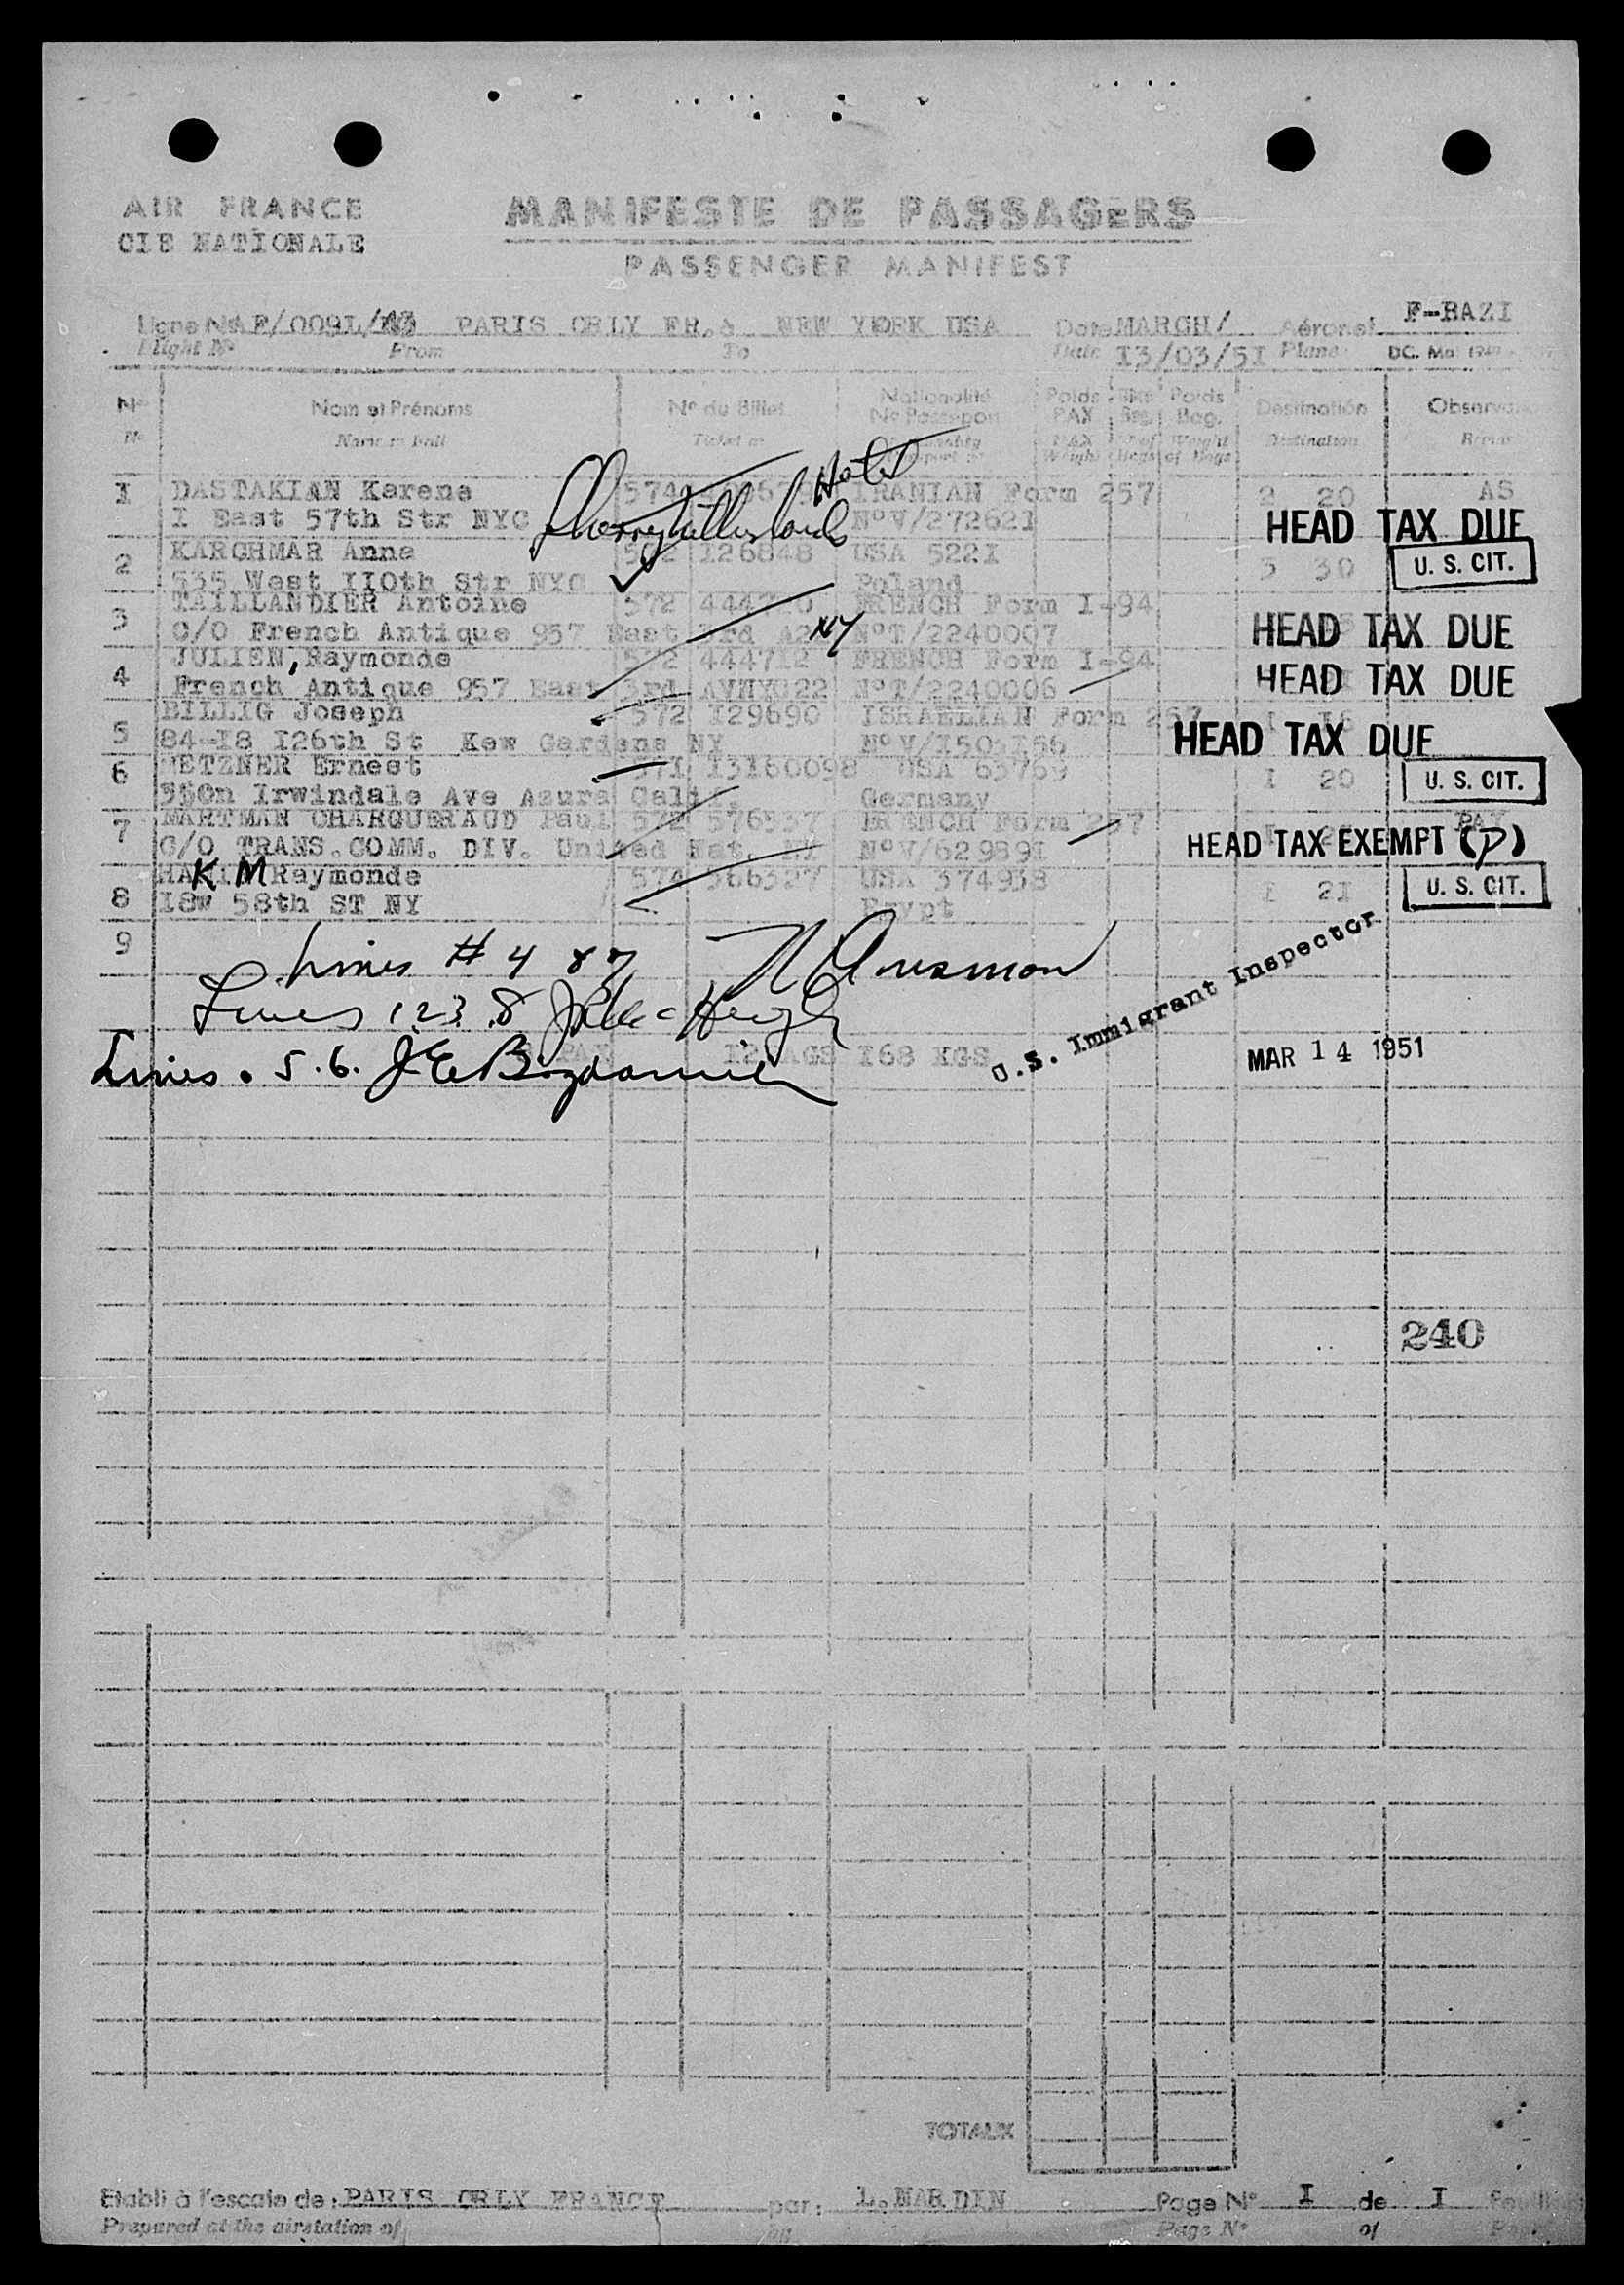 AIR FRANCE
CIE NATIONALE
MANIFESTE DE PASSAGERS
PASSENGER MANIFEST
Ligne No PARIS ORLY FR. à NEW YORK USA Date MARCH/ Aéronef F-BAZI
Flight No From To Date 13/03/51 Plane DC.
No Nom et Prénoms No du Billet Nationalité No Passeport Poids PAX Poids Bag. Destination
Name in full Weight of Bags Destination
I DASTAKIAN Karene 574 IRANIAN Form 257 2 20 AS
I East 57th Str NYC Hotel No V/272621 HEAD TAX DUE
2 KARCHMAR Anna 572 I26848 USA 522I 3 30 U. S. CIT.
535 West II0th Str NYC Poland
3 TAILLANDIER Antoine 572 FRENCH Form I-94
C/O French Antique 957 East 3rd NY No T/2240007 HEAD TAX DUE
4 JULIEN, Raymonde 572 4447I2 FRENCH Form I-94
French Antique 957 East 3rd No T/2240006 HEAD TAX DUE
5 BILLIG Joseph 572 I29690 ISRAELIAN Form 257 I I6
84-I8 I26th St Kew Gardens NY HEAD TAX DUE
6 METZNER Ernest 57I I3I60098 USA 63769 I 20 U. S. CIT.
Irwindale Ave Azura Calif. Germany
7 MARTMAN CHARQUERAUD Paul 572 576537 FRENCH Form 257 PAY
C/O TRANS.COMM. DIV. United Nat. NY No V/629891 HEAD TAX EXEMPT (P)
8 K M Raymonde 574 566327 USA 374938 I 2I U. S. CIT.
I8W 58th ST NY Egypt
9
Lines # 4 & 7
Lines 1 2 3 8
PAX I2 BAGS I68 KGS U.S. Immigrant Inspector
Lines 5. 6. MAR 14 1951
240
TOTAUX
Etabli à l'escale de: PARIS ORLY FRANCE par: L.MARDIN Page No I de I
Prepared at the airstation of Page No of